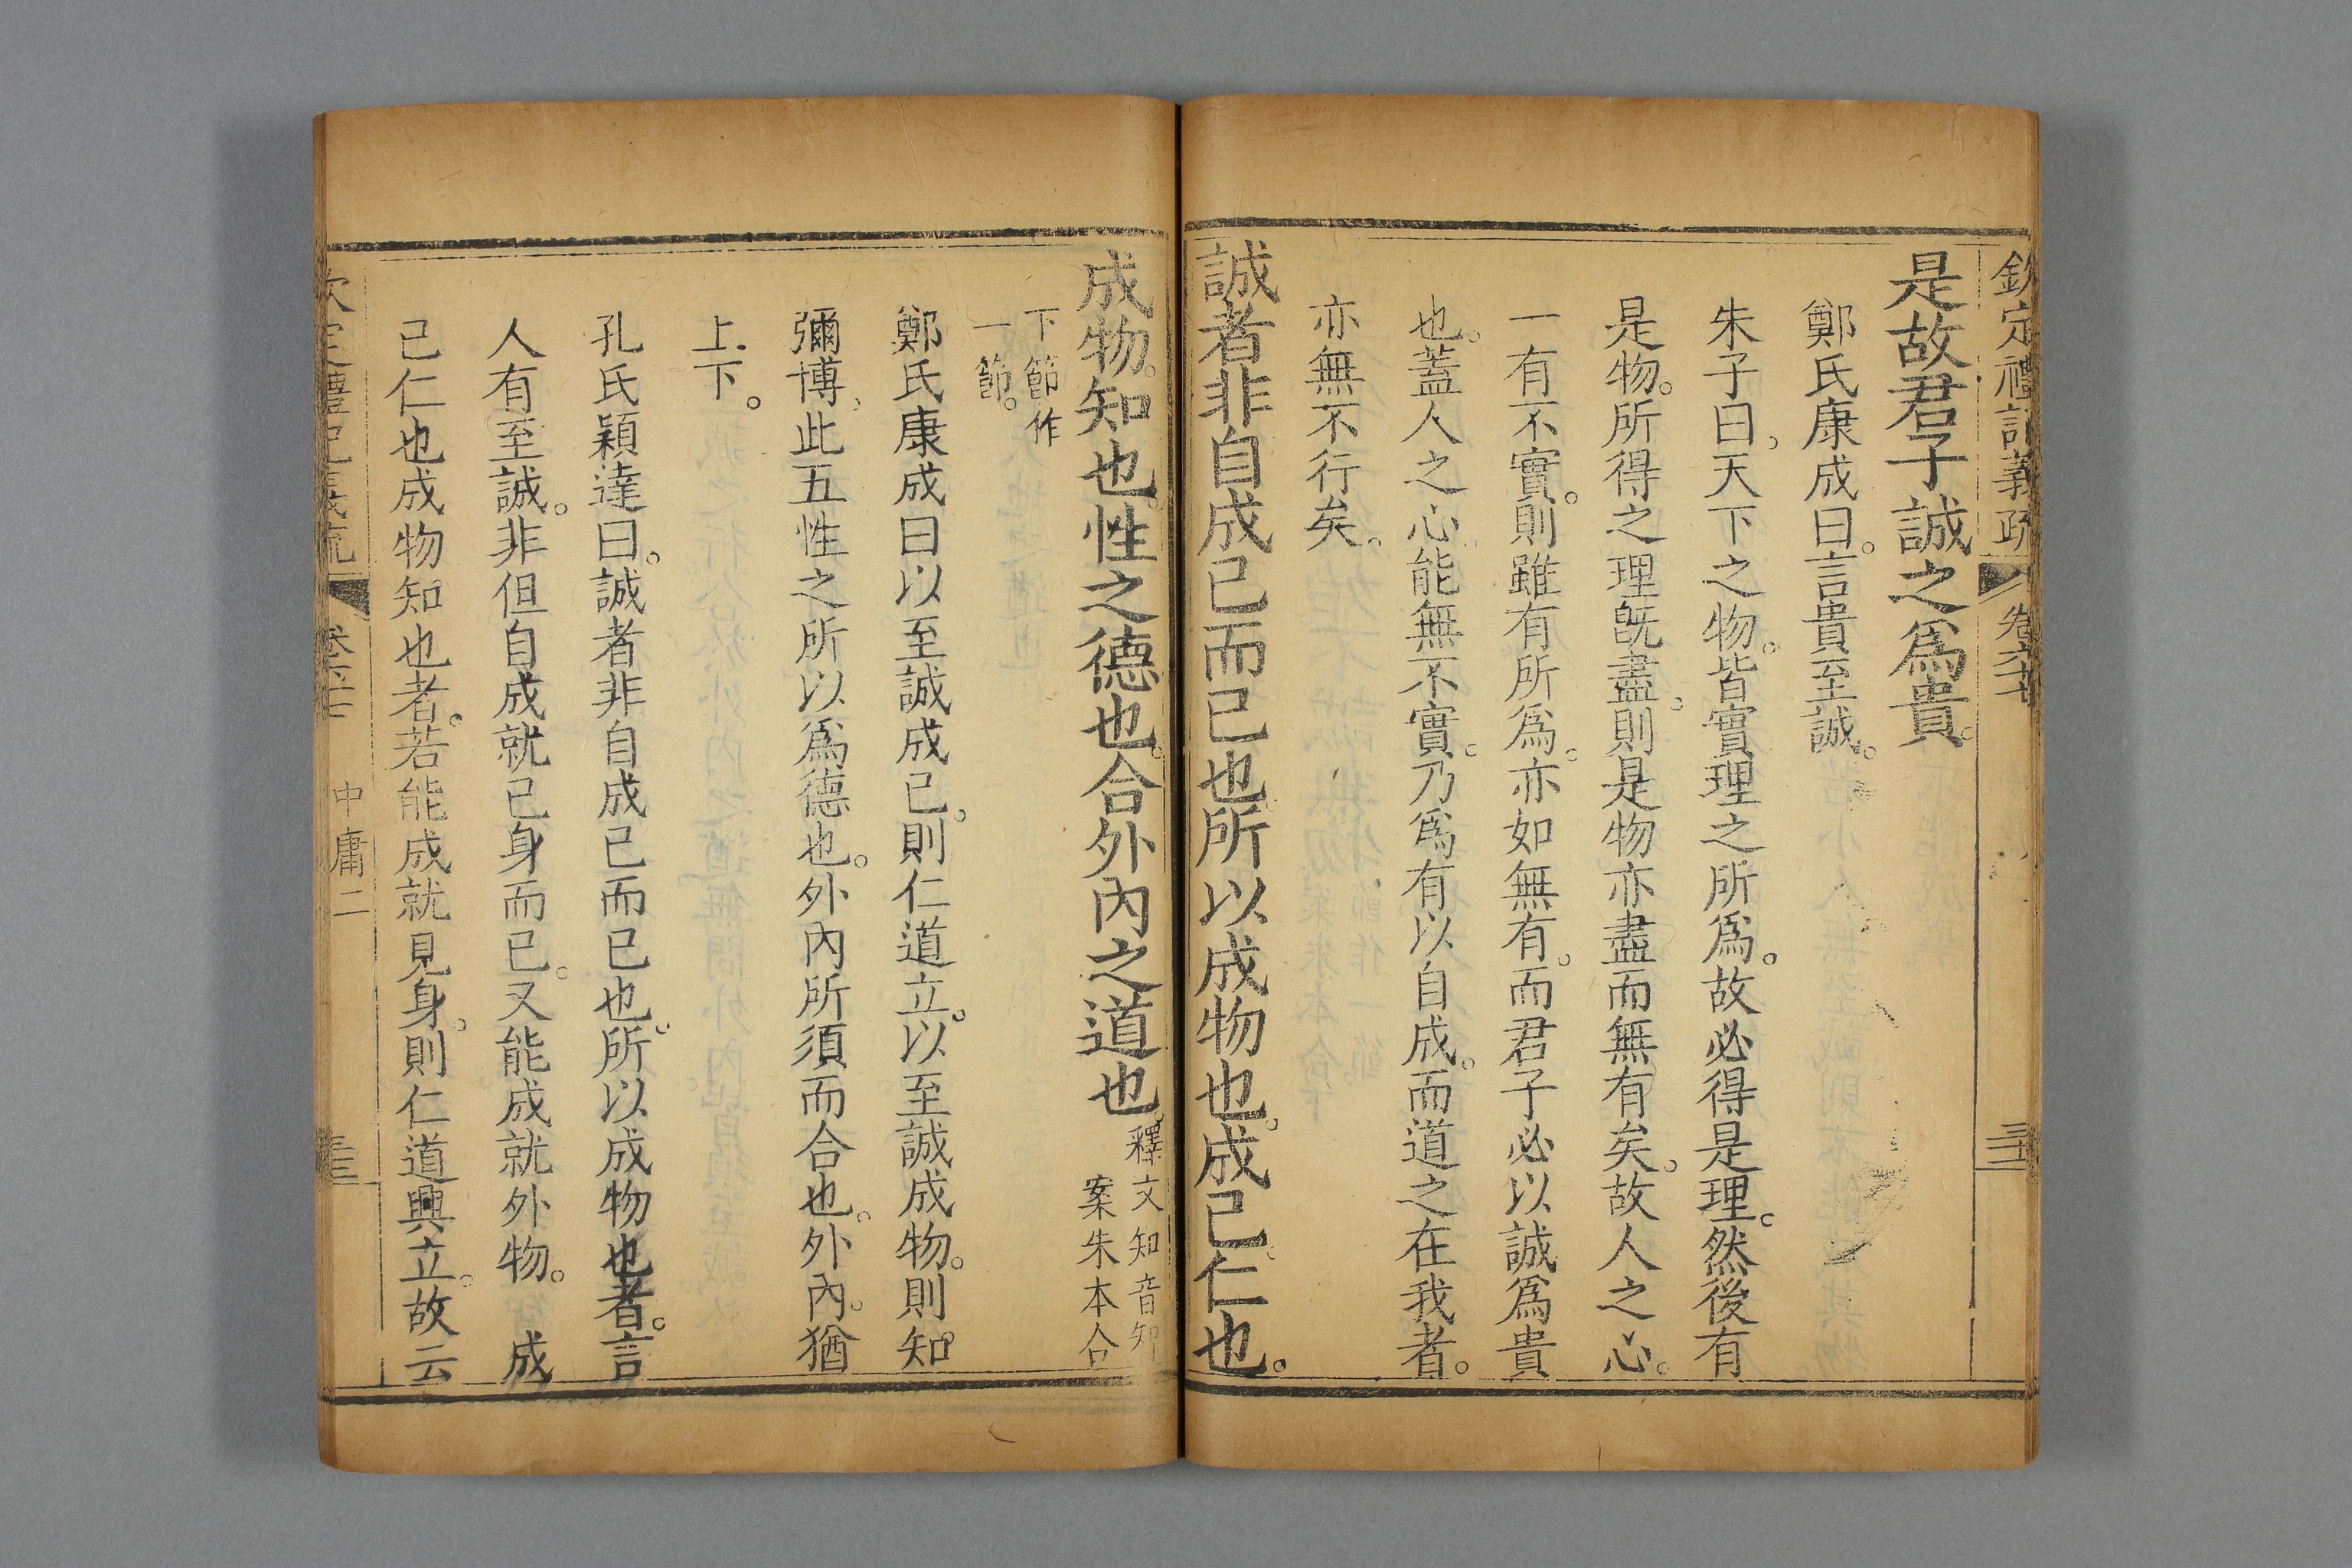 欽定禮記義疏 卷六十七 三十二
是故君子誠之爲貴。
鄭氏康成曰。言貴至誠。
朱子曰、天下之物。皆實理之所爲。故必得是理。然後有
是物。所得之理旣盡。則是物亦盡而無有矣。故人之心。
一有不實。則雖有所爲。亦如無有。而君子必以誠爲貴
也。蓋人之心能無不實。乃爲有以自成。而道之在我者。
亦無不行矣。
誠者非自成已而已也所以成物也。成已。仁也。
成物。知也。性之德也。合外內之道也。釋文知音知
案朱本合
下節作
一節。
鄭氏康成曰以至誠成已。則仁道立。以至誠成物。則知
彌博、此五性之所以爲德也。外內所須而合也。外內。猶
上下。
孔氏穎達曰。誠者非自成已而已也。所以成物也者。言
人有至誠。非但自成就已身而已。又能成就外物。 成
已仁也成物知也者。若能成就見身。則仁道興立。故云
欽定禮記義疏 卷六十七 中庸二